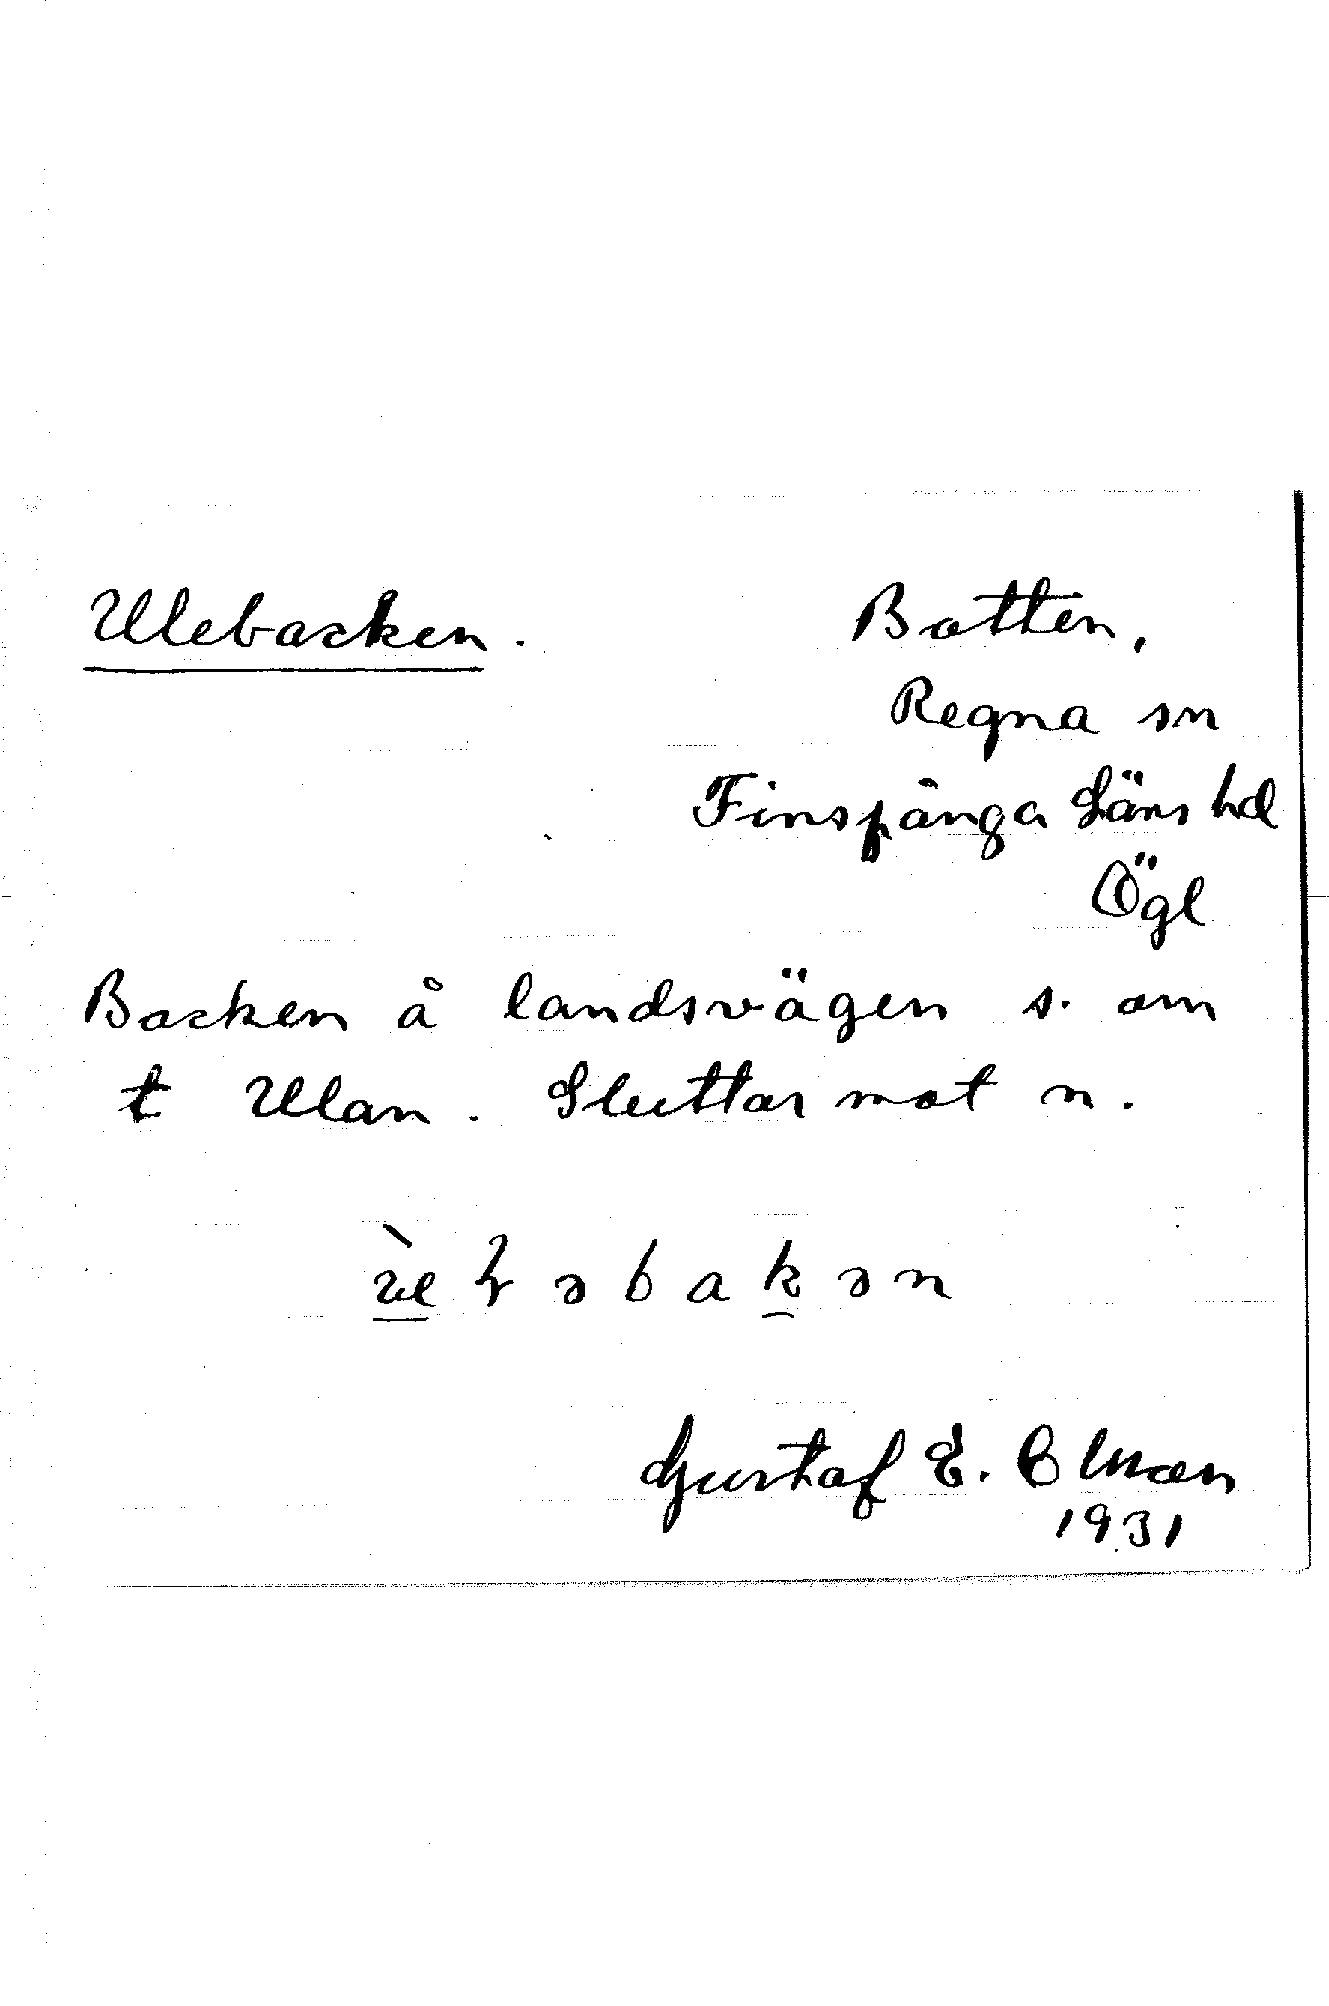 Ulebacken. Botten,
Regna sn
Finspånga Läns hd
Ögl
Backen å landsvägen s. om
t Ulan. Sluttar mot n.
Gustaf E. Olman
1931